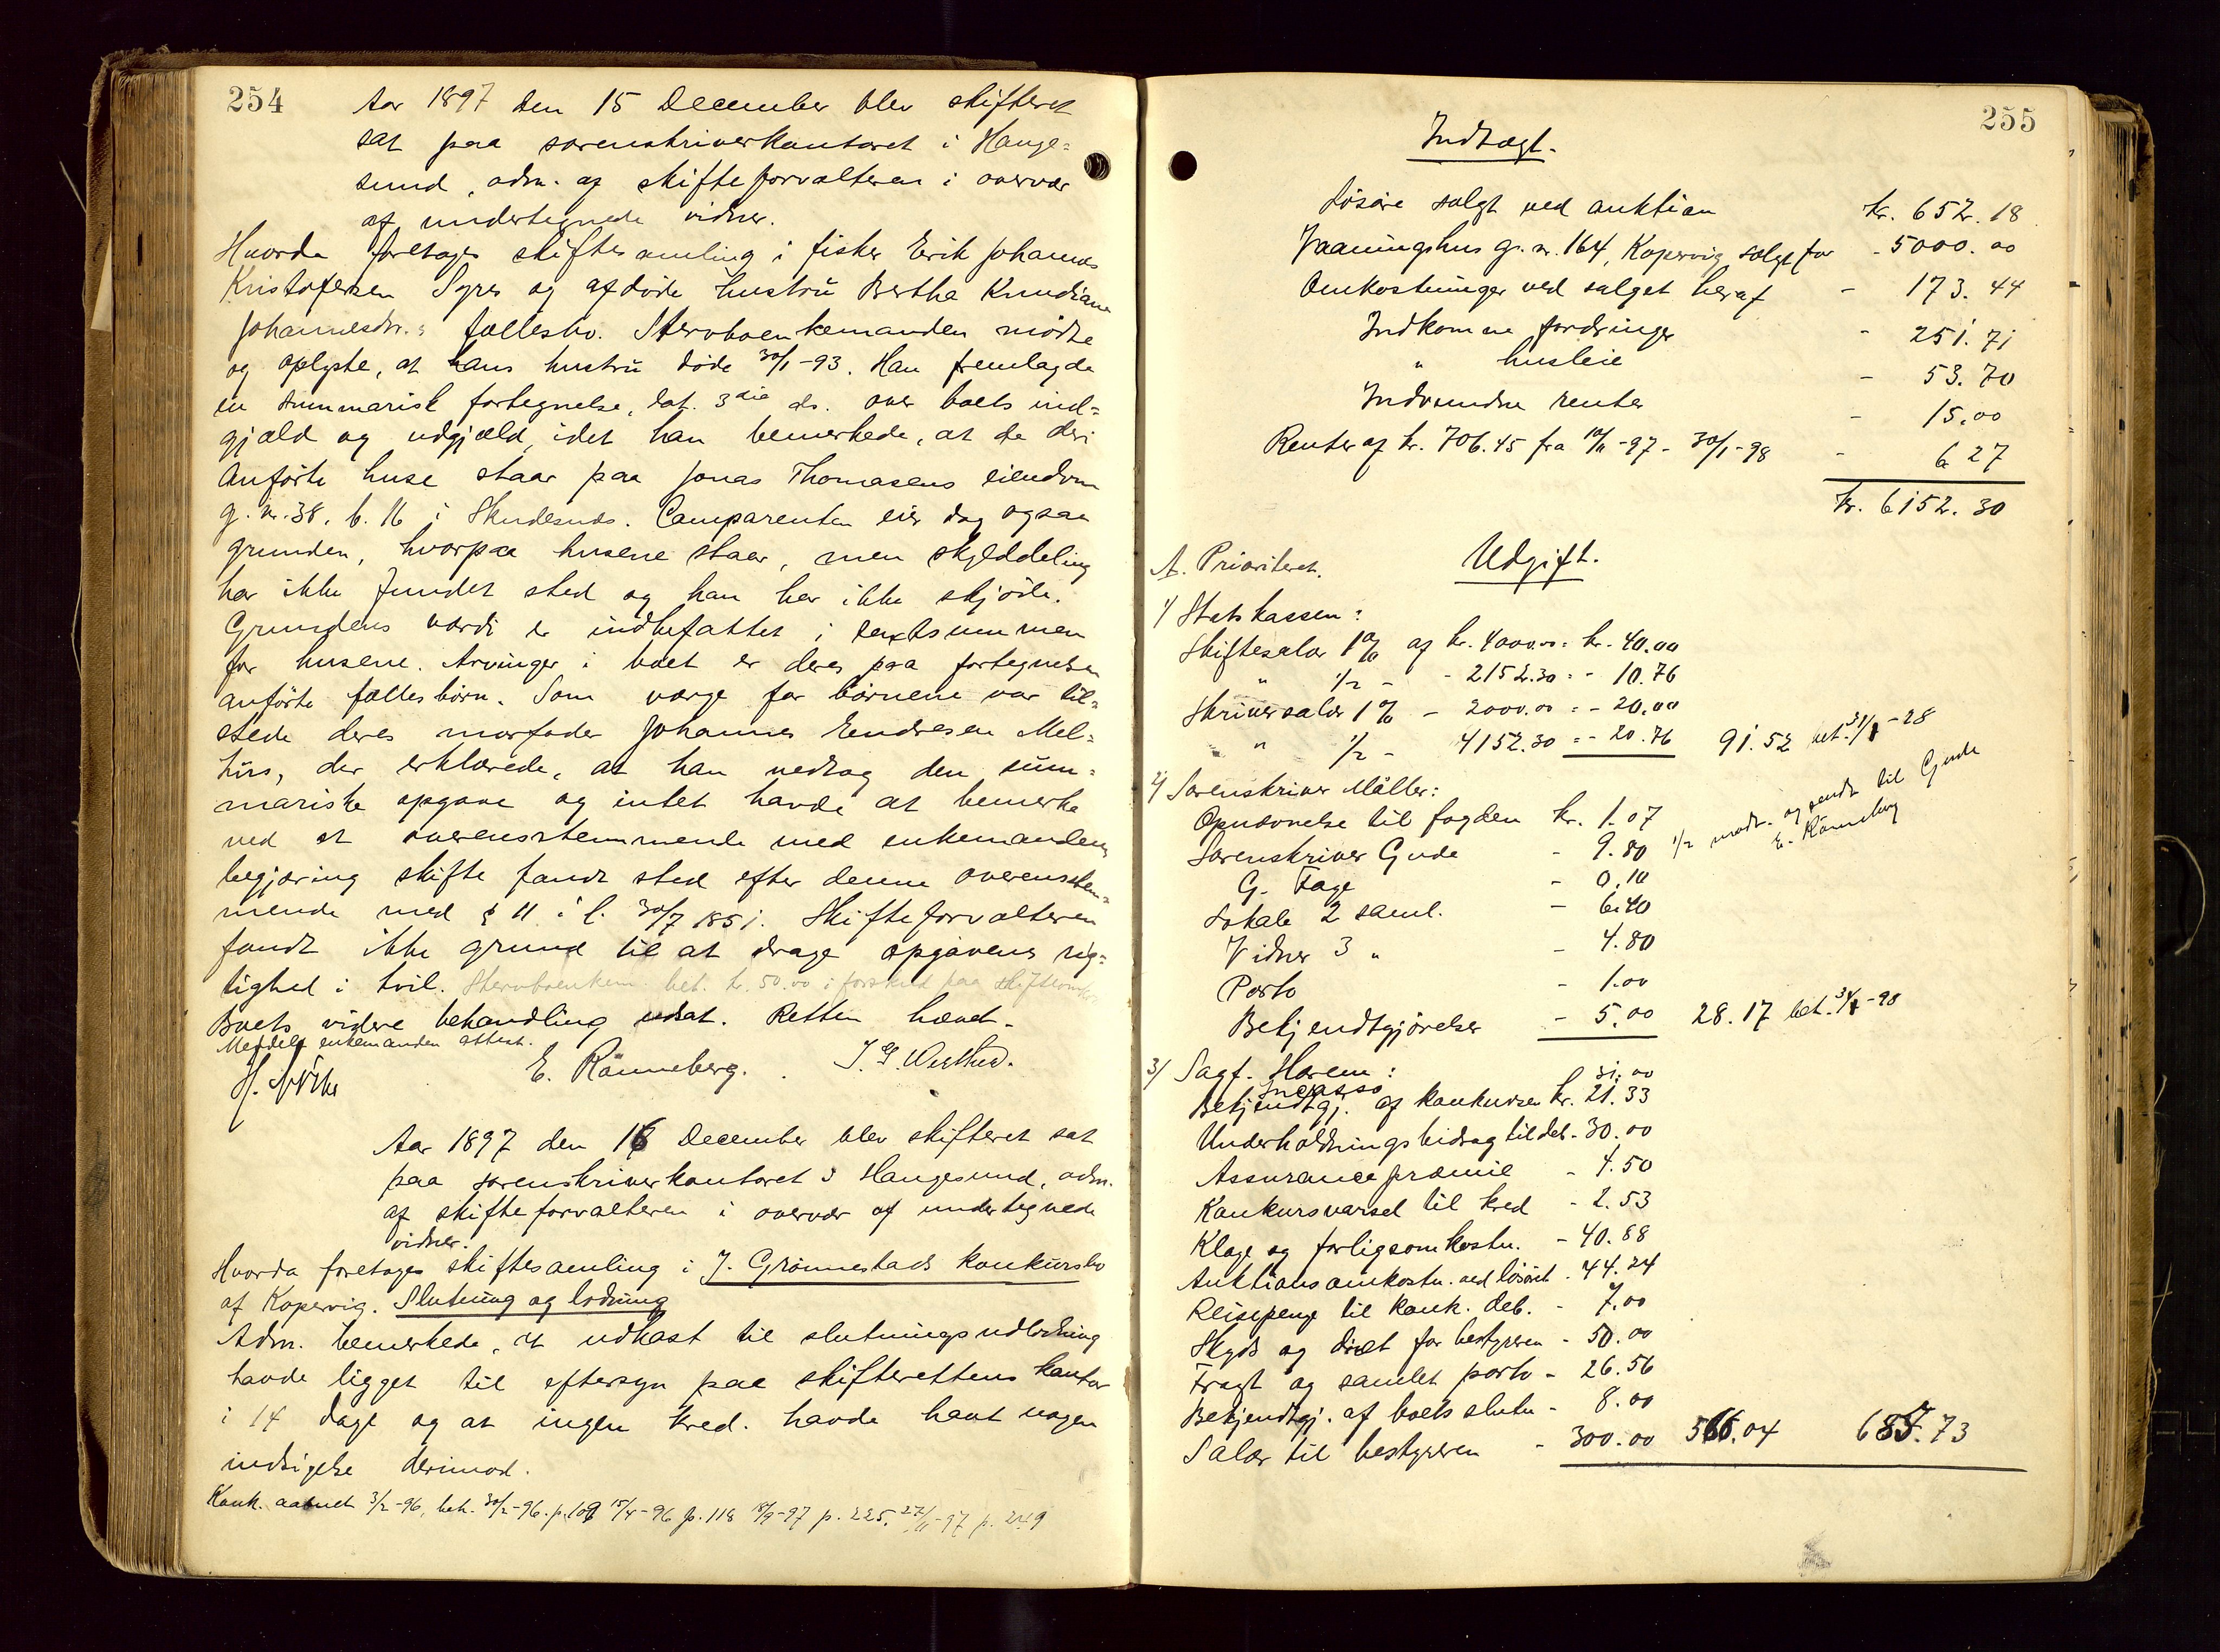 254
Aar 1897 den 15 December blev skifteret
sat paa sorenskriverkontoret i Hauge=
sund, adm. af skifteforvalteren i overvær
af undertegnede vidner.
Hvorda foretoges skiftesamling i fisker Erik Johannes
Kristofersen Syres og afdöde hustru Bertha Knudiane
Johannesdtr.s fællesbo. Stervboenkemanden mödte
og oplyste, at hans hustru döde 30/1-93. Han fremlagde
en summarisk fortegnelse, dat. 3die ds. over boets ind=
gjæld og udgjæld, idet han bemerkede, at de deri
anförte huse staar paa Jonas Thomasens eiendom
g.nr. 38, b. 16 i Skudesnæs. Comparenten eier dog ogsaa
grunden, hvorpaa husene staar, men skylddeling
har ikke fundet sted og han har ikke skjöde.
Grundens værdi er indbefattet i taxtsummen
for husene. Arvinger i boet er deres paa fortegnelsen
anförte fællesbörn. Som værge for börnene var til=
stede deres morfader Johannes Endresen Mel=
hus, der erklærede, at han vedtog den sum=
mariske opgave og intet havde at bemerke
ved at overensstemmende med enkemandens
begjæring skifte fandt sted efter denne overensstem=
mende med § 11 i l. 30/7 1851. Skifteforvalteren
fandt ikke grund til at drage opgavens rig=
tighed i tvil. Stervboenkem. bet. kr. 50.00 i forskud paa skifteomk.
Boets videre behandling udsat. Retten hævet.
Meddelt enkemanden attest.
E. Rönneberg. J. G. Westhed.
Aar 1897 den 16 December blev skifteret sat
paa sorenskriverkontoret i Haugesund, adm.
af skifteforvalteren i overvær af undertegnede
vidner.
Hvorda foretoges skiftesamling i J. Grönnestads konkursbo
af Kopervig. Slutning og lodning
Adm. bemerkede, at udkast til slutningsudlodning
havde ligget til eftersyn paa skifterettens kontor
i 14 dage og at ingen kred. havde havt nogen
indsigelse derimod.
Konk. aabnet 3/2-96, beh. 30/2-96. p. 109 15/4-96 p. 118 18/9-97 p. 225. 27/11-97 p. 249
255
Indtægt.
Lösöre solgt ved auktion kr. 652. 18
Vaaningshus g.nr. 164, Kopervig solgt for - 5000. 00
Omkostninger ved salget heraf - 173. 44
Indkomne fordringer - 251. 71
" husleie - 53. 70
Indvundne renter - 15.00
Renter af kr. 706.45 fra 10/11-97 - 30/1-98 - 6 27
kr. 6152. 30
Udgift.
A. Prioriteret.
1/ Statskassen:
Skiftesalær 1% af kr. 4000.00 = kr. 40.00
" 1/2 - - 2152.30 = - 10.76
Skriversalær 1% - 2000.00 = - 20.00
" 1/2 - 4152.30 = - 20.76 91.52 bet. 31/1-98
2/ Sorenskriver Möller:
Opnævnelse til fogden kr. 1.07
Sorenskriver Gude - 9.80 1/2 modt. og sendt til Gude
E. Rönneberg
G. Fage - 0.10
Lokale 2 saml. - 6.40
Vidner 3 " - 4.80
Porto - 1.00
Bekjendtgjörelser - 5.00 28.17 bet. 31/1-98
3/ Sagf. Horem:
Incasso 31.00
Bekjendtgj. af konkursen kr. 21.33
Underholdningsbidrag til deb. - 30.00
Assurancepræmie - 4.50
Konkursvarsel til kred - 2.53
Klage og forligsomkostn. - 40.88
Auktionsomkostn. ved lösöret - 44.24
Reisepenge til konk. deb. - 7.00
Skyds og diæt for bestyreren - 50.00
Fragt og samlet porto - 26.56
Bekjendtgj. af boets slutn - 8.00
Salær til bestyreren - 300.00 566.04 685.73